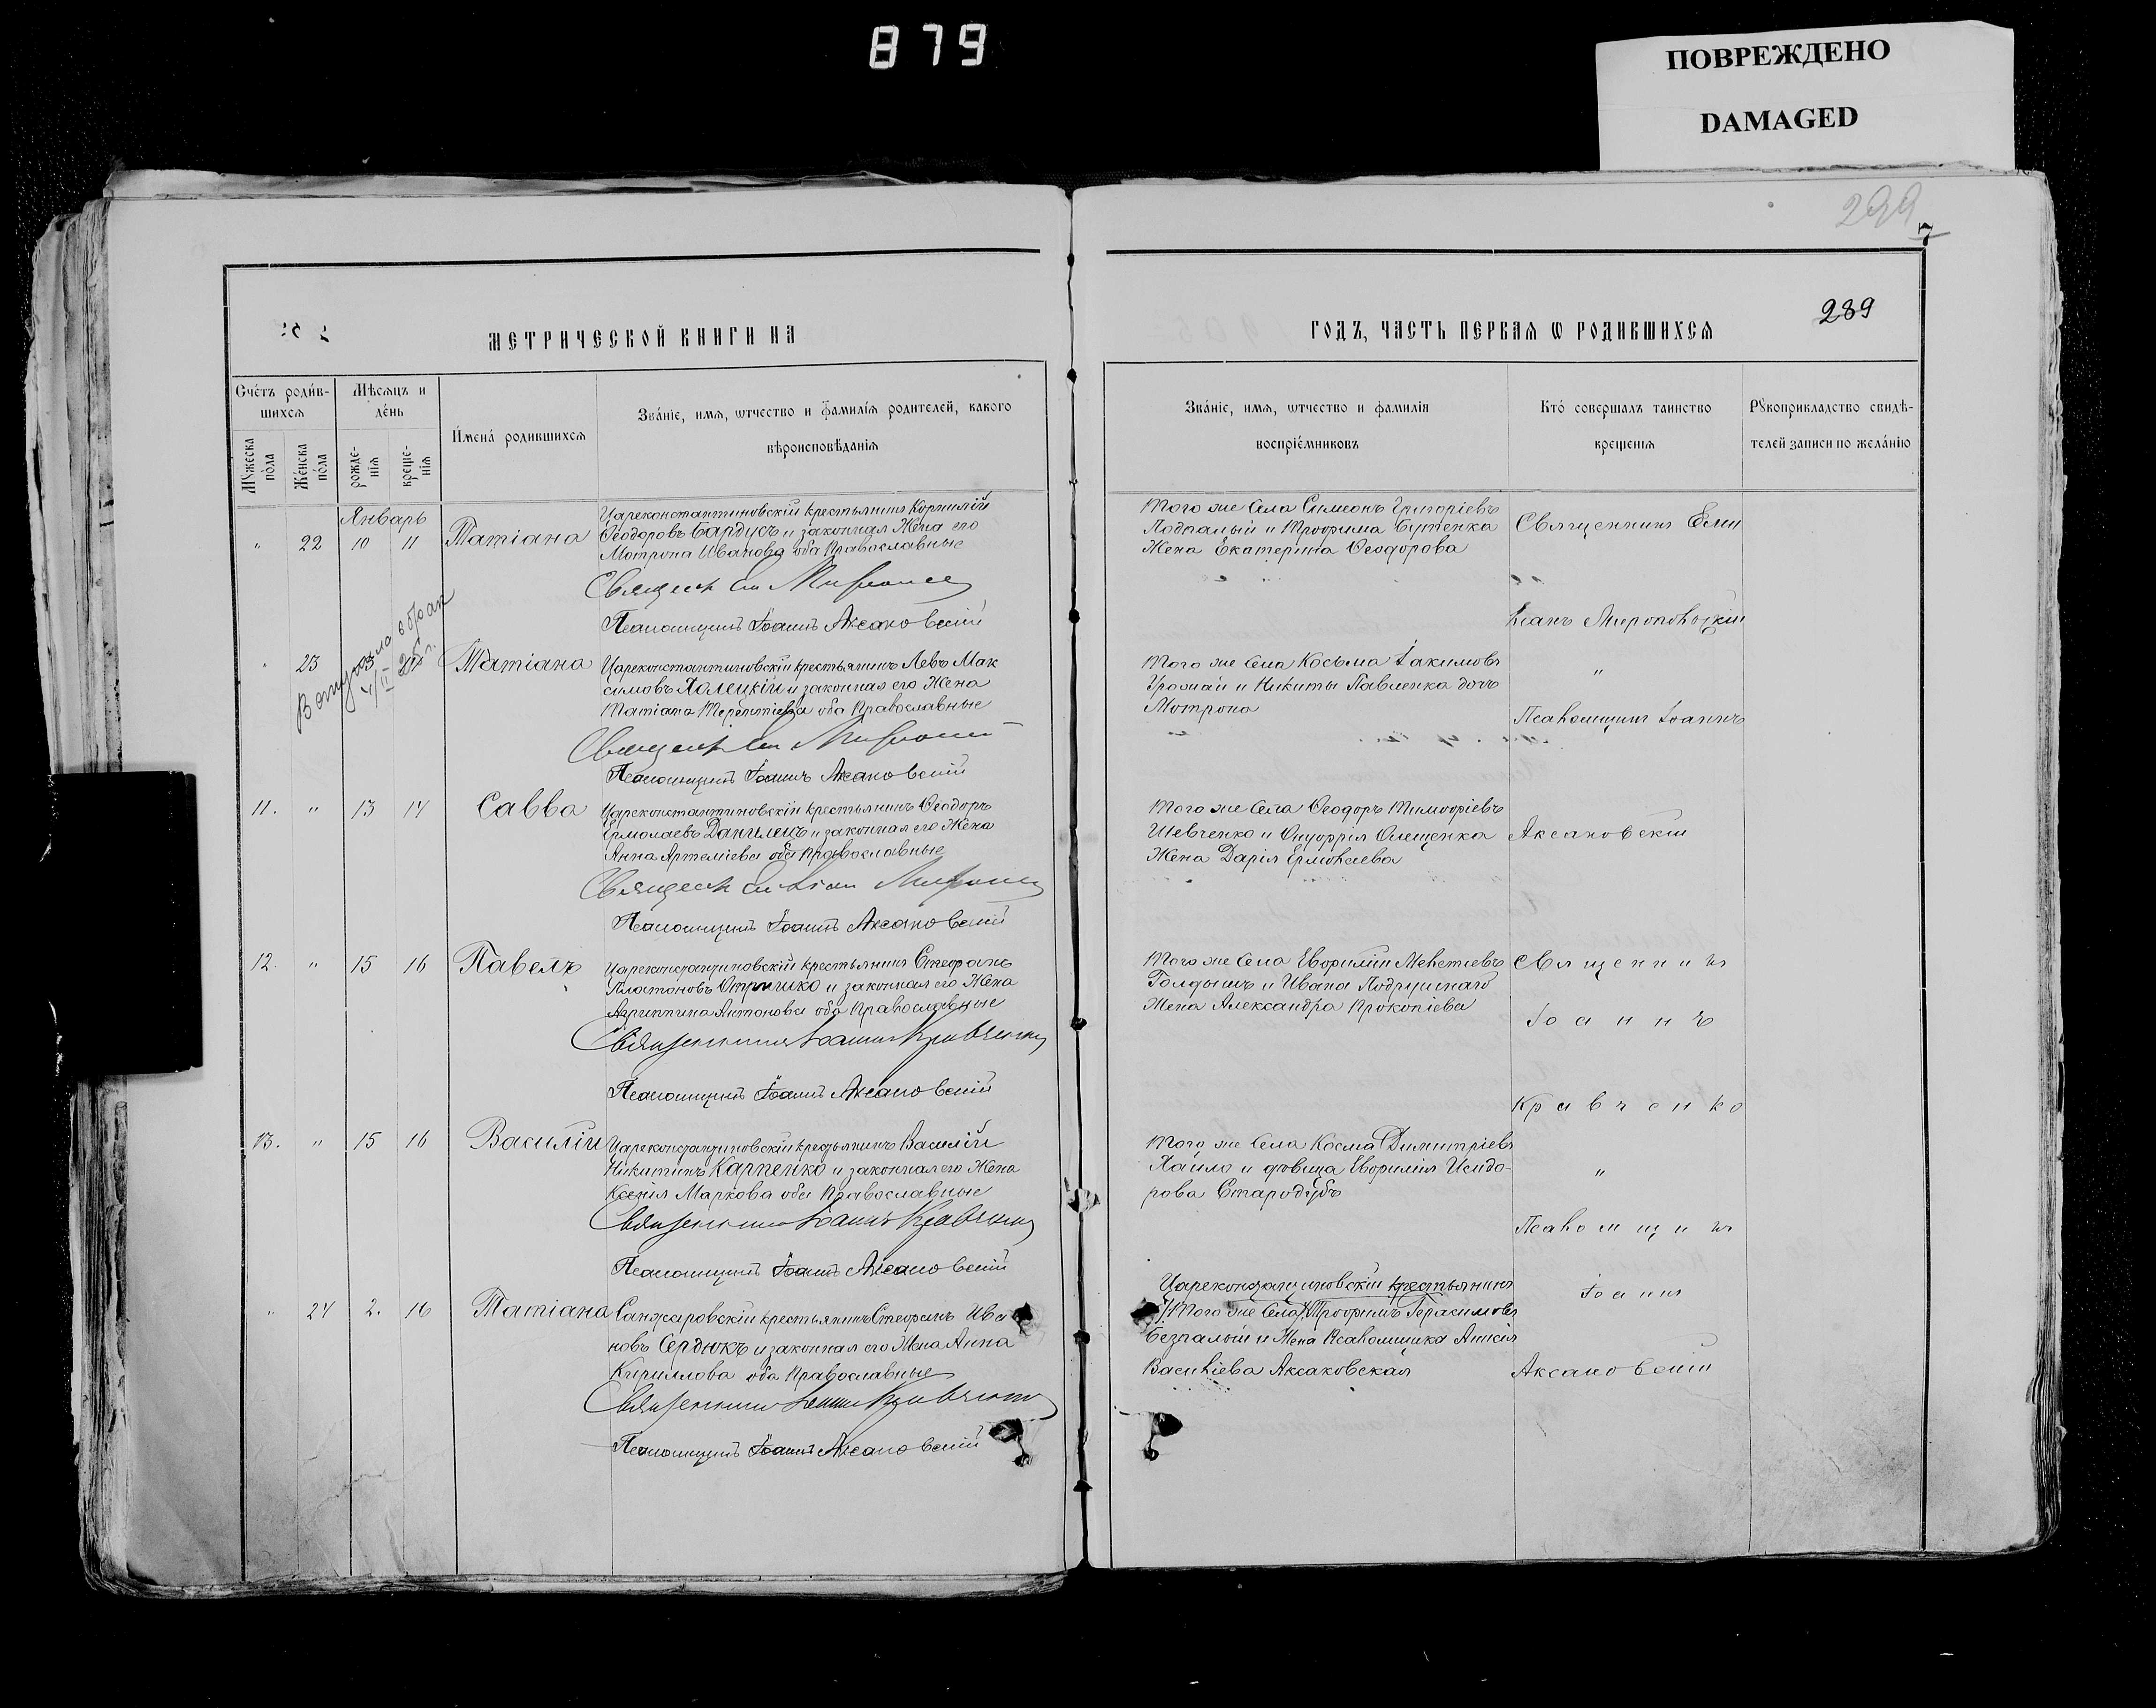 879
ПОВРЕЖДЕНО
DAMAGED
299
7
289
МЕТРИЧЕСКОЙ КНИГИ НА
ГОДЪ, ЧАСТЬ ПЕРВАЯ Ѡ РОДИВШИХСЯ
Счетъ родив-
шихся
Мѣсяцъ и
день
Мꙋжеска
пола
Женска
пола
рожде-
нія
креще-
нія
Имена родившихся
Званіе, имя, ѡтчество и фамилія родителей, какого
вѣроисповѣданія
Званіе, имя, ѡтчество и фамилія
воспріемниковъ
Кто совершалъ таинство
крещенія
Рꙋкоприкладство свидѣ-
телей записи по желанію
Январь
" 22 10 11 Татіана
Цареконстантиновскій крестьянинъ Корнилій
Ѳеодоровъ Бардусъ и законная жена его
Мотрона Иванова оба Православные
Псаломщикъ Іоаннъ Аксаковскій
Того же Села Симеонъ Григоріевъ
Подпалый и Трофима Бутенка
Жена Екатерина Ѳеодорова
Священникъ Еми
ліанъ
Вступила в брак
4/II 25 г.
" 23 Татіана
Цареконстантиновскій крестьянинъ Левъ Мак
симовъ Холецкій и законная его Жена
Татіана Терентіева оба Православные
Псаломщикъ Іоаннъ Аксаковскій
Того же Села Косьма Іакимовъ
Урожай и Никиты Павленка дочь
Мотрона
"
Псаломщикъ Іоаннъ
11. " 13 14 Савва
Цареконстантиновскій крестьянинъ Ѳеодоръ
Ермолаевъ Данилецъ и законная его Жена
Анна Артеміева оба Православные
Псаломщикъ Іоаннъ Аксаковскій
Того же Села Ѳеодоръ Тимоѳіевъ
Шевченко и Онуфрія Олещенка
Жена Дарія Ермолаева
Аксаковскій
12. " 15 16 Павелъ
Цареконстантиновскій крестьянинъ Стефанъ
Платоновъ Отришко и законная его Жена
Агриппина Антонова оба Православные
Священникъ Іоаннъ Кравченко
Псаломщикъ Іоаннъ Аксаковскій
Того же Села Евфимій
и Ивана
Жена Александра Прокопіева
Священникъ
Іоаннъ
Кравченко
13. " 15 16 Василій
Цареконстантиновскій крестьянинъ Василій
Никитинъ Карпенко и законная его Жена
Ксенія Маркова оба Православные
Священникъ Іоаннъ Кравченко
Псаломщикъ Іоаннъ Аксаковскій
Того же Села Косма Димитріевъ
Хайло и дѣвица Евфимія Исидо-
рова Стародубъ
"
Псаломщикъ
" 24 2. 16 Татіана
Санжаровскій крестьянинъ Стефанъ Ива
новъ Сердюкъ и законная его Жена Анна
Кириллова оба Православные
Священникъ Іоаннъ Кравченко
Псаломщикъ Іоаннъ Аксаковскій
Цареконстантиновскій крестьянинъ
Того же Села Трофимъ Герасимовъ
Безпалый и Жена Псаломщика Анисія
Василіева Аксаковская
Іоаннъ
Аксаковскій